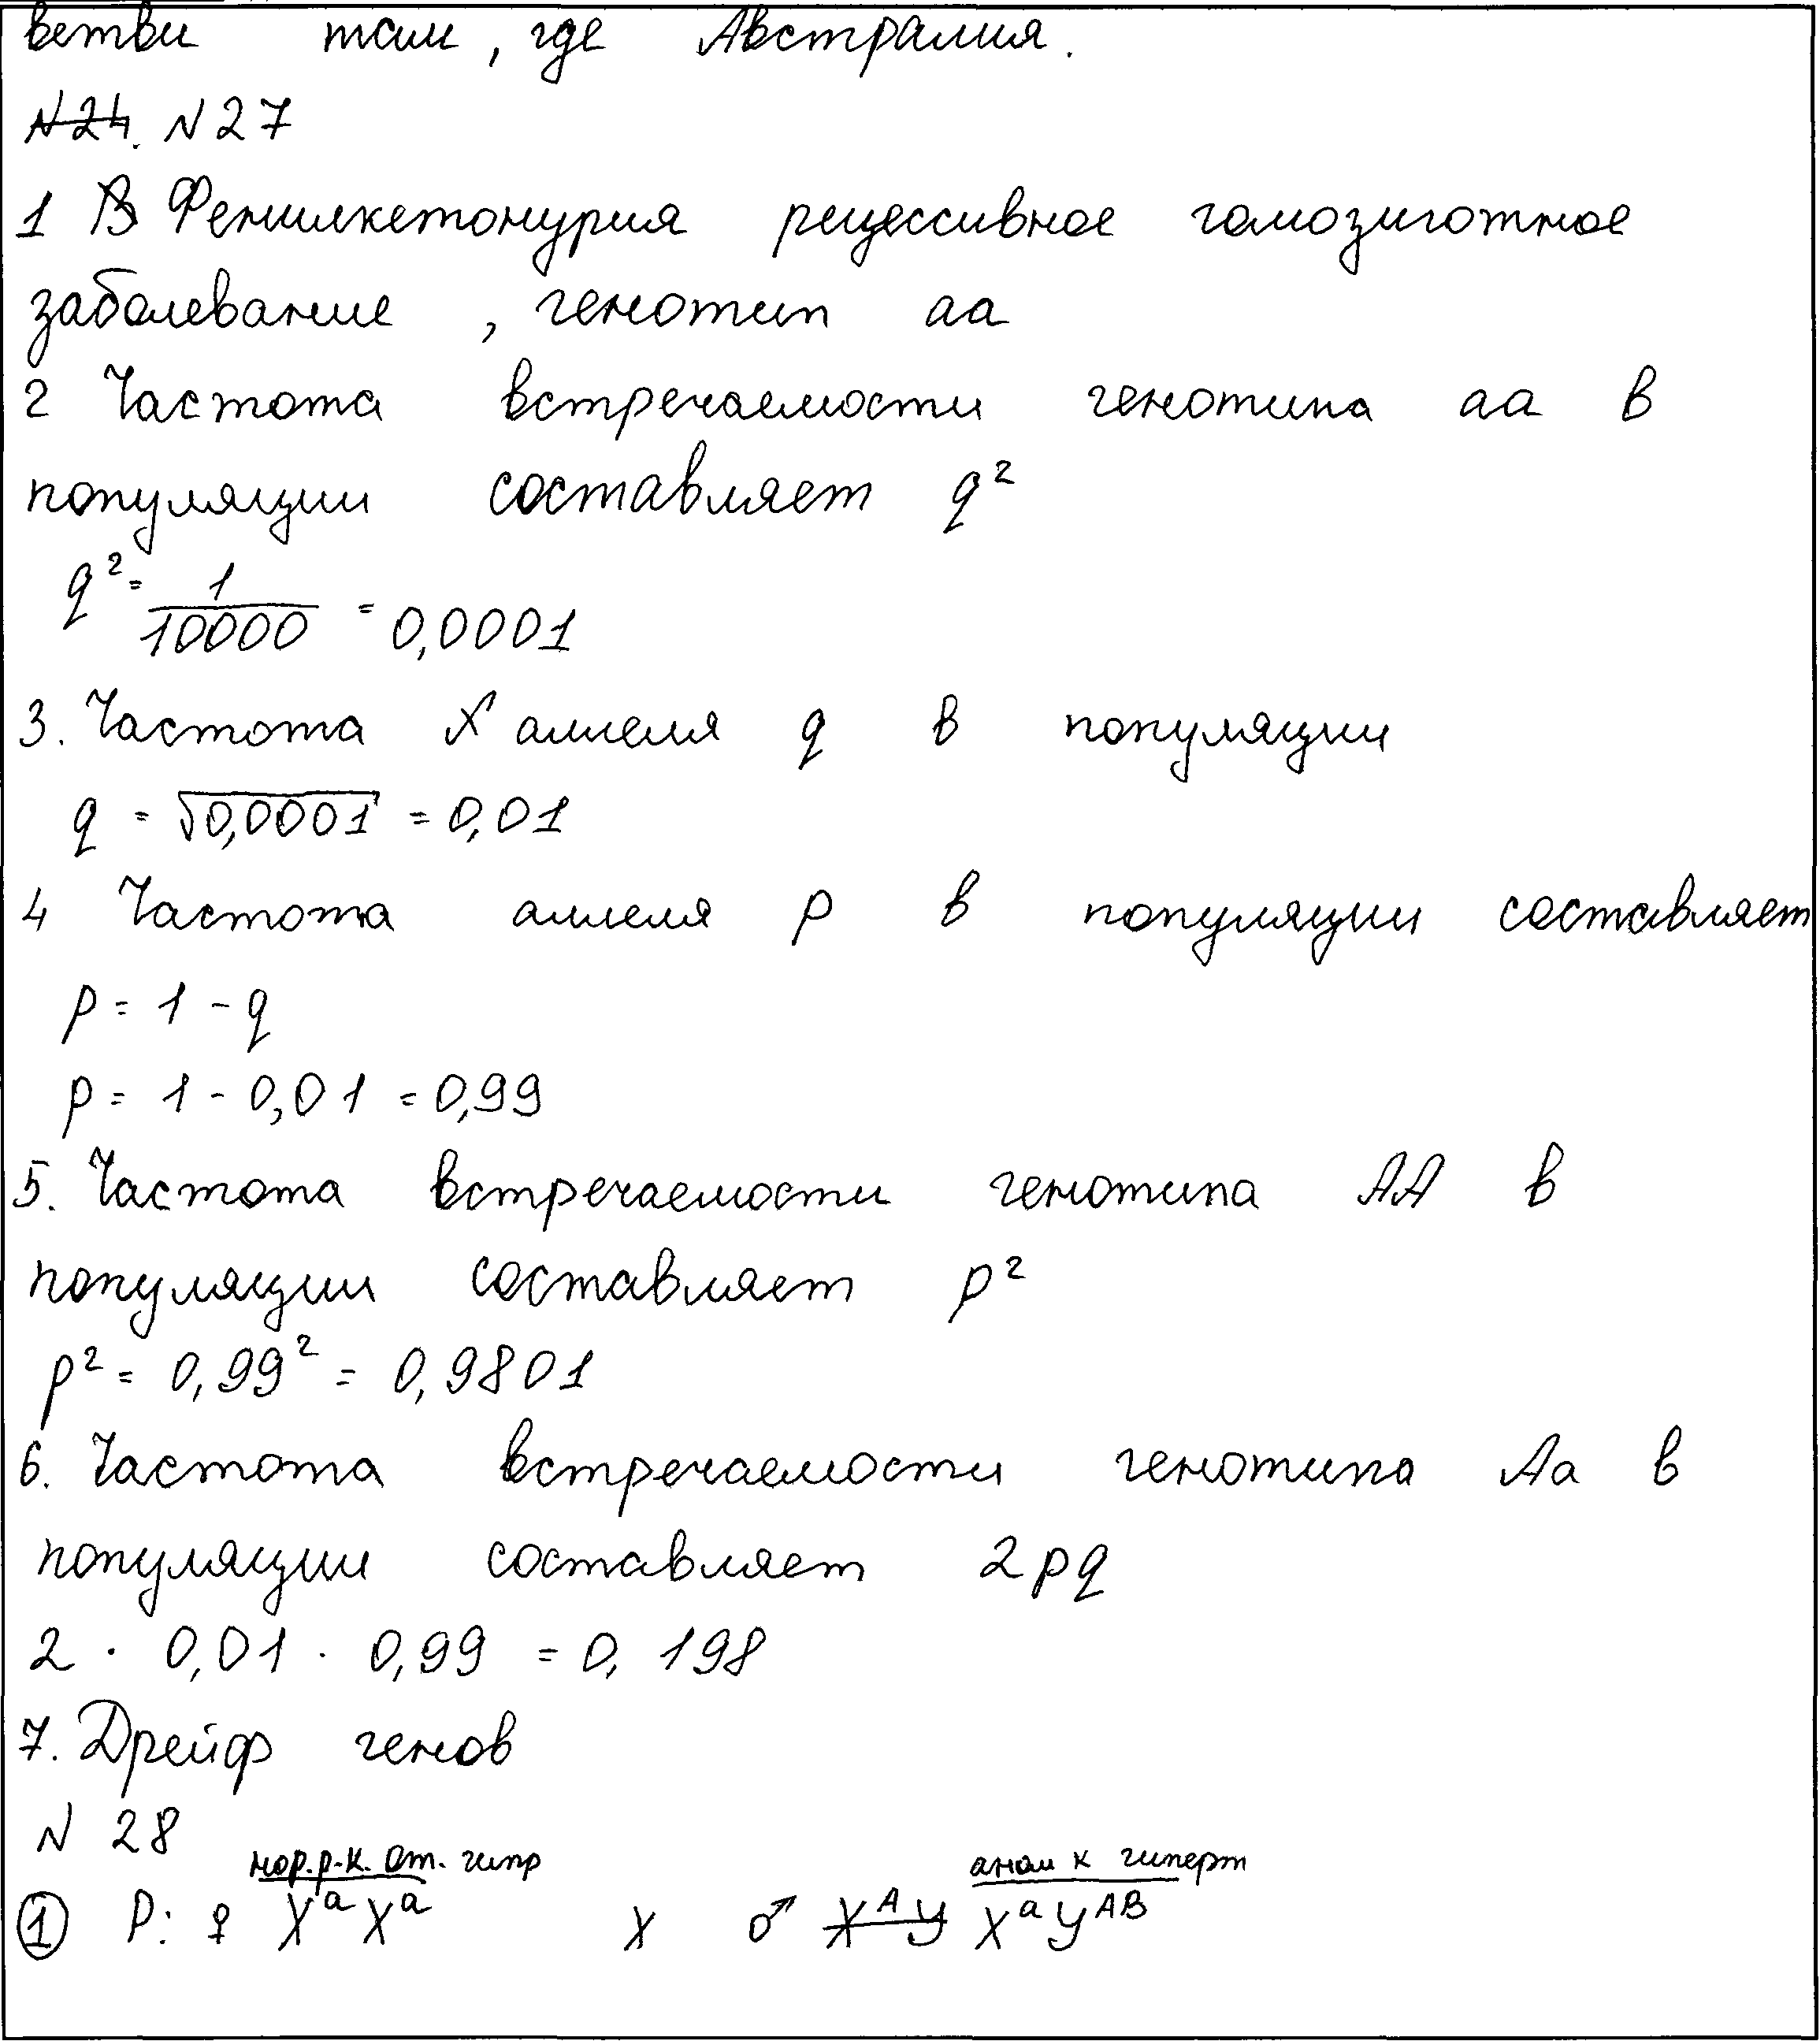 ветви там, где Австралия.
N24. N27
1 В Фенилкетонурия рецессивное гомозиготное
заболевание, генотип аа
2 Частота встречаемости генотипа аа в
популяции составляет q²
q² = 1/10000 = 0,0001
3. Частота X аллеля q в популяции
q = √0,0001 = 0,01
4 Частота аллеля p в популяции составляет
p = 1 - q
p = 1 - 0,01 = 0,99
5. Частота встречаемости генотипа АА в
популяции составляет p²
p² = 0,99² = 0,9801
6. Частота встречаемости генотипа Аа в
популяции составляет 2pq
2 · 0,01 · 0,99 = 0,198
7. Дрейф генов
N 28
нор. р-к. От. гипр аном к гиперт
① P: ♀ XᵃXᵃ X ♂ XᴬY XᵃYᴬᴮ